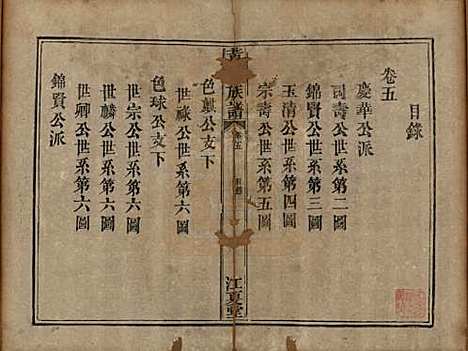 目錄
卷五
慶華公派
司壽公世系第二圖
錦賢公世系第三圖
玉清公世系第四圖
宗壽公世系第五圖
族譜
卷五
目錄
江夏堂
公支下
世祿公世系第六圖
色球公支下
世宗公世系第六圖
世麟公世系第六圖
世卿公世系第六圖
錦賢公派